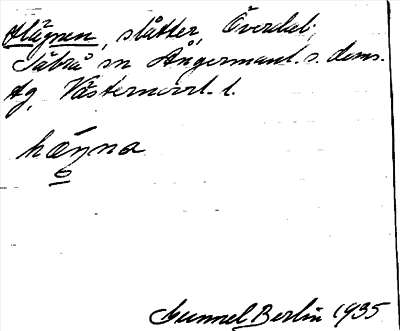 Hägnen, slåtter, Överdal,
Säbrå sn Ångermanl. s. doms.
tg, Västernorrl. l.
hæŋna
Gunnel Berlin 1935